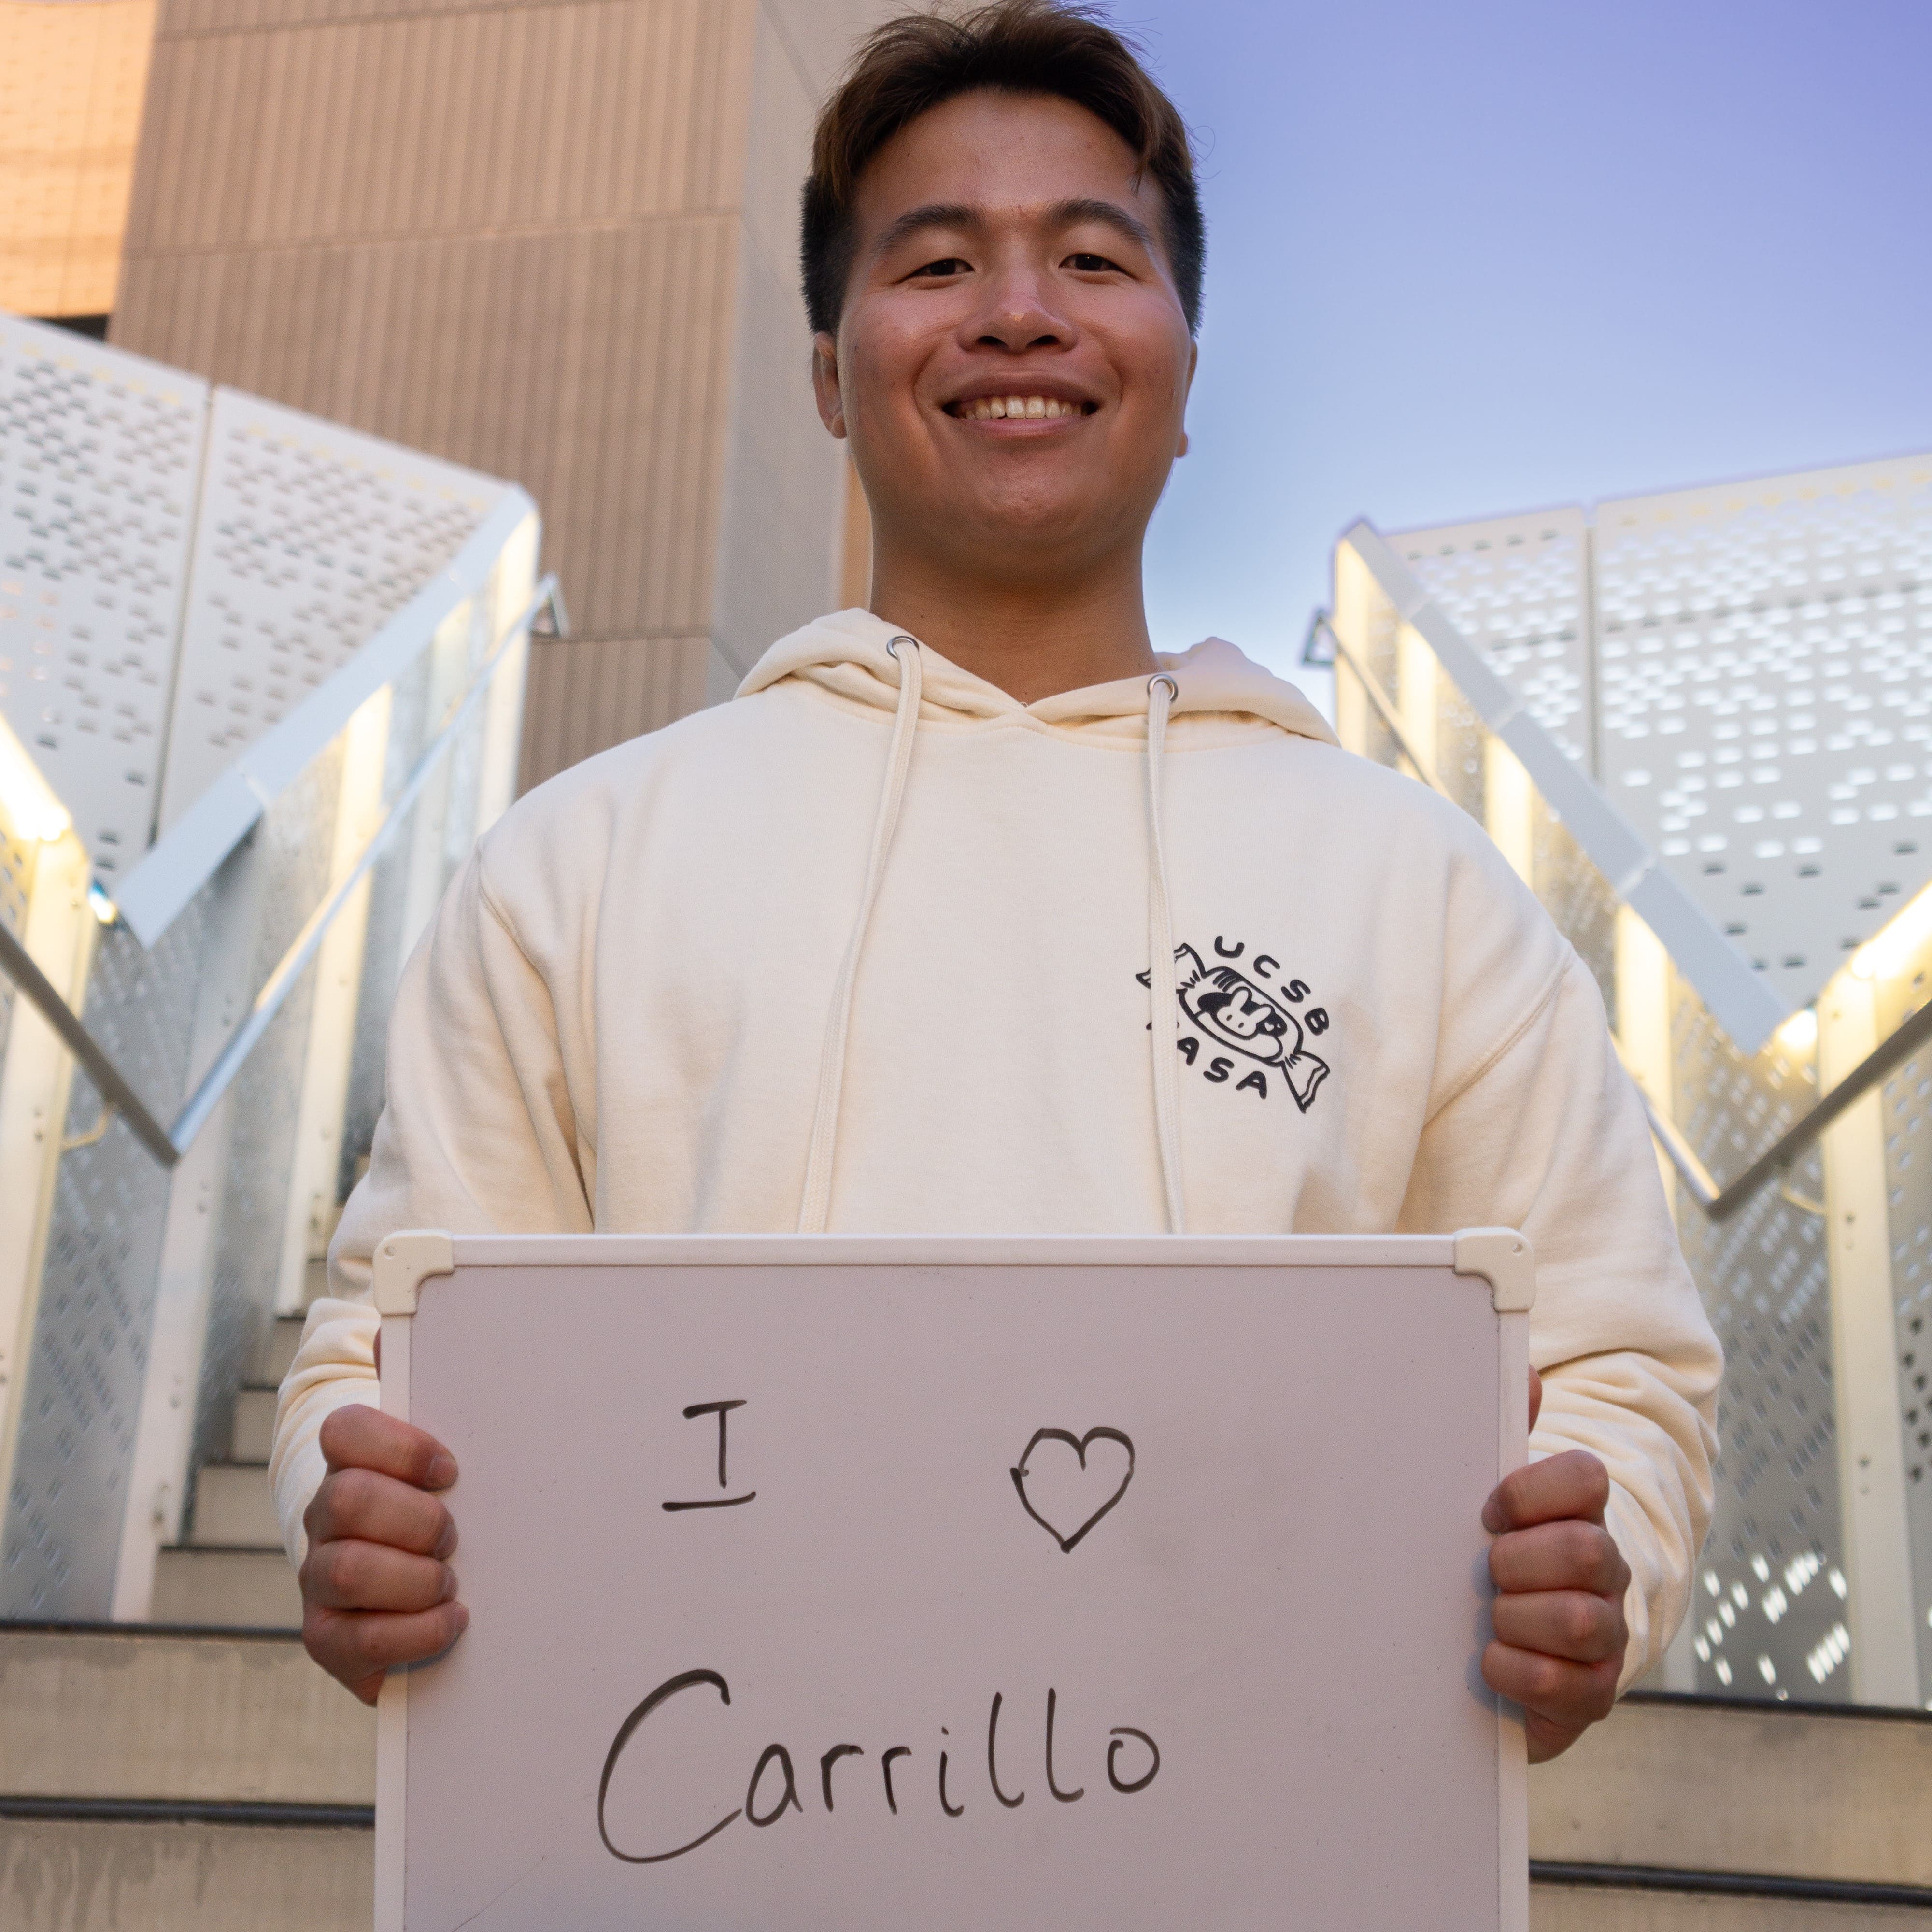 UCSB
ASA
I ♡
Carrillo